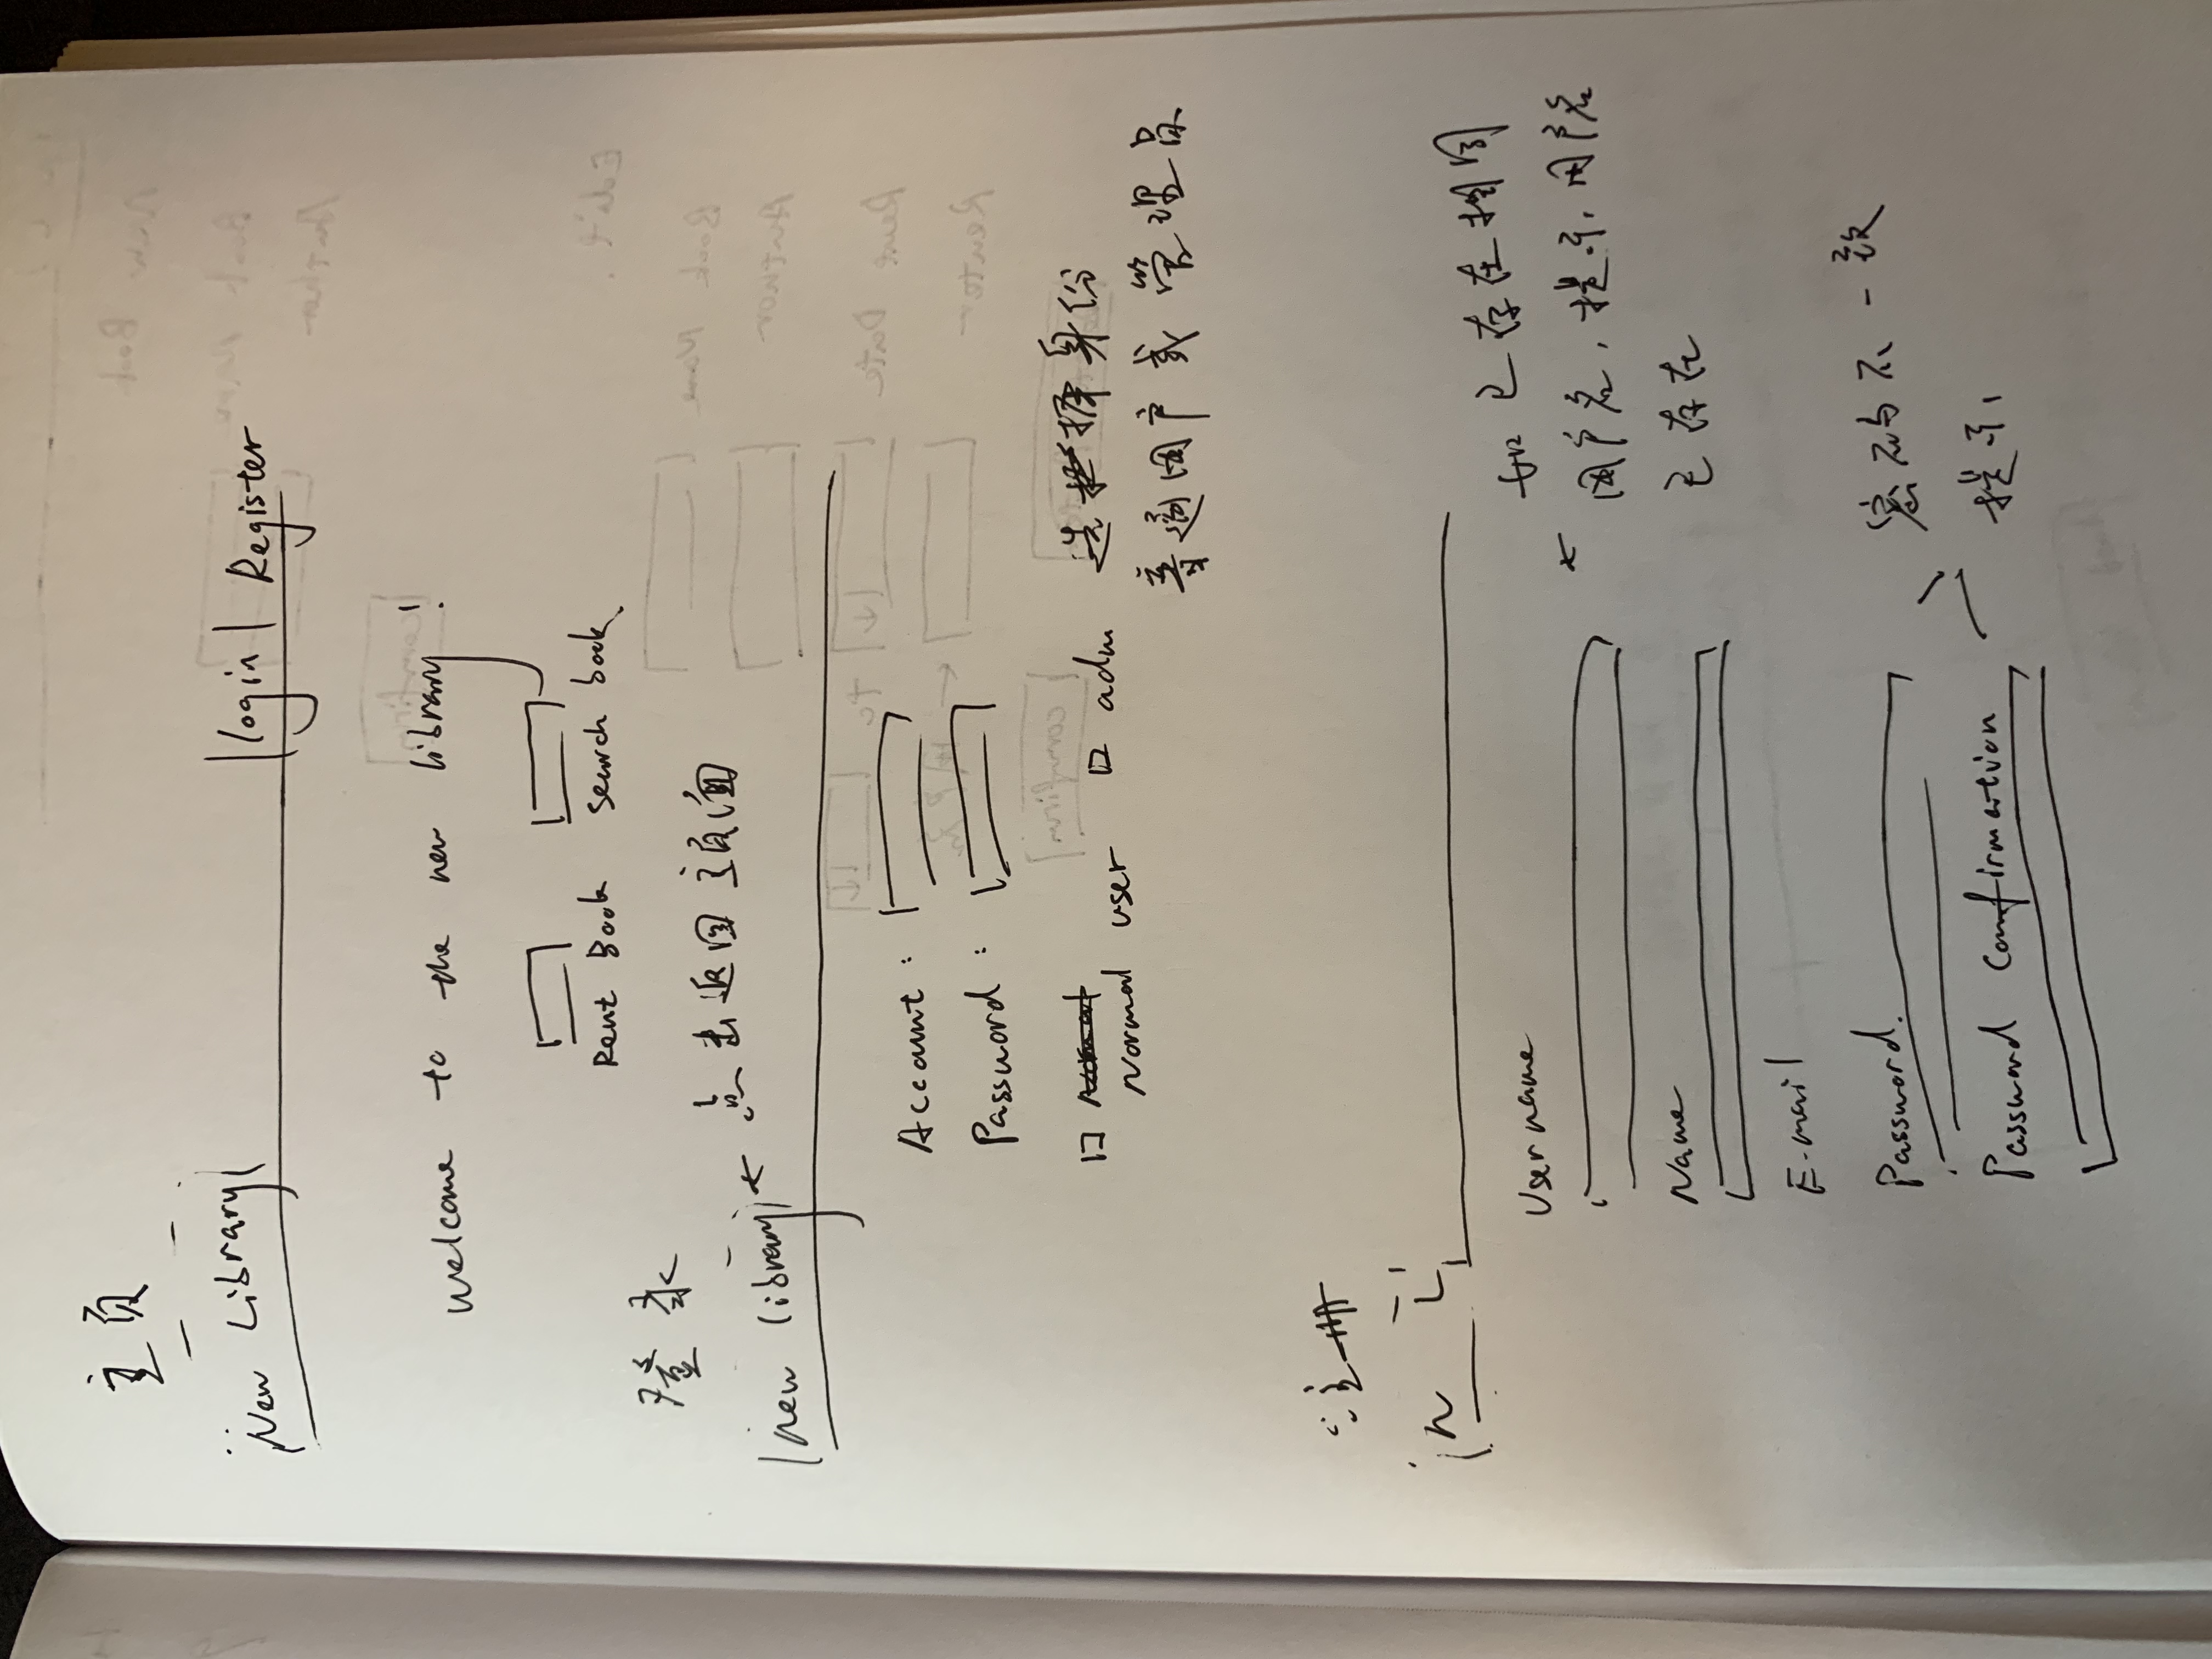 主页
New Library login Register
Welcome to the new library!
Rent Book search book
登录
new library 点击返回主页面
Account:
Password:
Normal user adm 选择身份
普通用户或管理员
注册
N L
Username
如已存在相同
用户名,提示用户名
已存在
Name
E-mail
Password.
密码不一致
提示
Password Confirmation